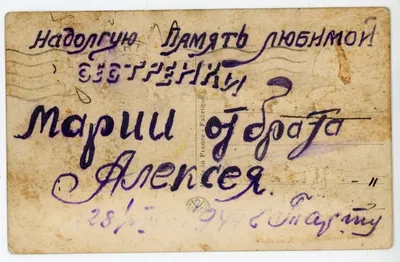 надолгую Память любимой
сестренки
Марии от брата
Алексея.
28/ 1944 г Тарту
in France - Fabriqué